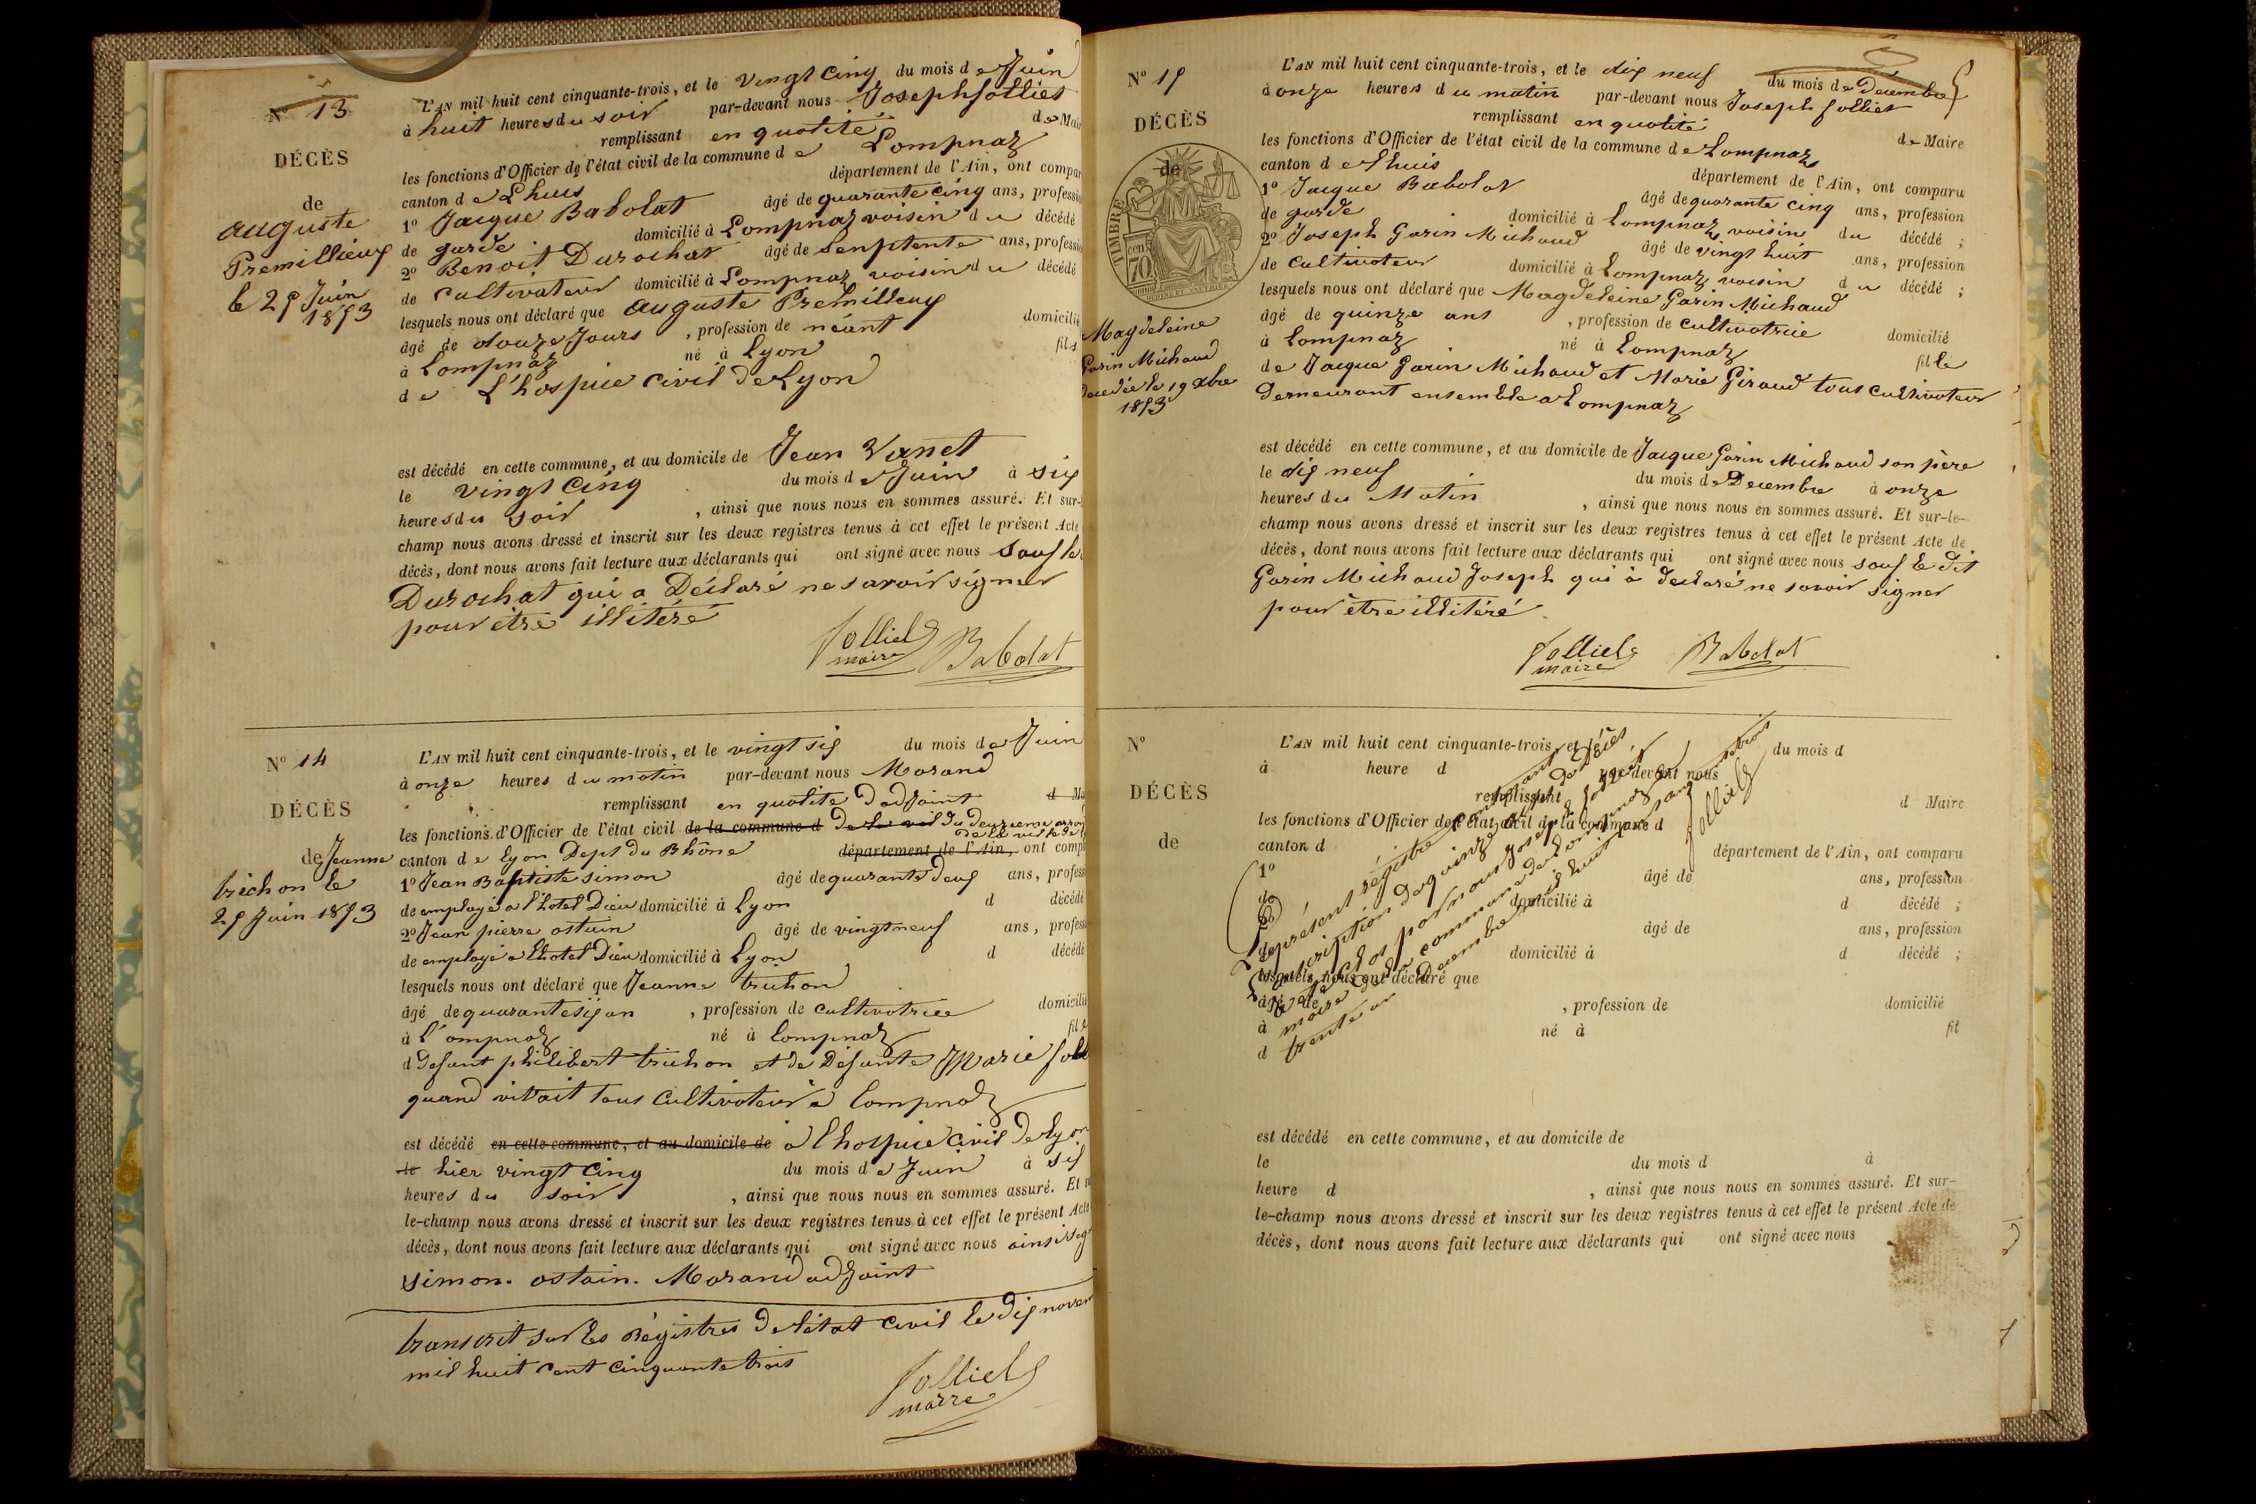 Nº 13
DÉCÈS
de
auguste
Premillieux
le 25 Juin
1853
L'AN mil huit cent cinquante-trois, et le vingt cinq du mois de Juin
à huit heures du soir par-devant nous Joseph Jolliet
remplissant en qualité de Mair
les fonctions d'Officier de l'état civil de la commune de Lompnaz
canton de Lhuis département de l'Ain, ont compar
1º Jacque Babolat âgé de quarante cinq ans, professi
de garde domicilié à Lompnaz voisin du décédé
2º Benoit Durochat âgé de senptente ans, professi
de cultivateur domicilié à Lompnaz voisin du décédé
lesquels nous ont déclaré que auguste Premilleux
âgé de douze Jours , profession de néant domicilié
à Lompnaz né à Lyon fils
de L'hospice civil de Lyon
est décédé en cette commune, et au domicile de Jean
le vingt cinq du mois de Juin à six
heures du soir , ainsi que nous nous en sommes assuré. Et sur-
champ nous avons dressé et inscrit sur les deux registres tenus à cet effet le présent Acte
décès, dont nous avons fait lecture aux déclarants qui ont signé avec nous sauf le
Durochat qui a Déclaré ne savoir signer
pour être illitéré
Jolliet Babolat
maire
Nº 14
DÉCÈS
de Jeanne
trichon le
25 Juin 1853
L'AN mil huit cent cinquante-trois, et le vingt six du mois de Juin
à onze heures du matin par-devant nous Morand
remplissant en qualité d'adjoint d Ma
les fonctions d'Officier de l'état civil de la commune d du deuzieme
canton de Lyon Dept du Rhône département de l'Ain, ont comp
1º Jean Baptiste simon âgé de quarante deux ans, profess
de employé a l'hotel Dieu domicilié à Lyon d décédé
2º Jean pierre ostain âgé de vingt neuf ans, profess
de employé a l'hotel Dieu domicilié à Lyon d décédé
lesquels nous ont déclaré que Jeanne trichon
âgé de quarante six an , profession de cultivatrice domicilié
à Lompnaz né à Lompnaz fille
d defunt philibert trichon et de Défunte Marie Joll
quand vivait tous cultivateur a Lompnaz
est décédé en cette commune, et au domicile de a l'hospice civil de Lyon
le hier vingt cinq du mois de Juin à six
heures du soir , ainsi que nous nous en sommes assuré. Et
le-champ nous avons dressé et inscrit sur les deux registres tenus à cet effet le présent Acte
décès, dont nous avons fait lecture aux déclarants qui ont signé avec nous ainsi
simon. ostain. Morand adjoint
transcrit sur les Régistres de l'état civil le dix novem
mil huit cent cinquante trois
Jolliet
maire
Nº 15
DÉCÈS
de
TIMBRE
70
Magdeleine
Garin Michaud
decedée le 19 Xbre
1853
L'AN mil huit cent cinquante-trois, et le dix neuf du mois de Decembre
à onze heures du matin par-devant nous Joseph Jolliet
remplissant en qualité de Maire
les fonctions d'Officier de l'état civil de la commune de Lompnaz
canton de Lhuis département de l'Ain, ont comparu
1º Jacque Babolat âgé de quarante cinq ans, profession
de garde domicilié à Lompnaz voisin du décédé ;
2º Joseph Garin Michaud âgé de vingt huit ans, profession
de cultivateur domicilié à Lompnaz voisin du décédé ;
lesquels nous ont déclaré que Magdeleine Garin Michaud
âgé de quinze ans , profession de cultivatrice domicilié
à Lompnaz né à Lompnaz fille
de Jacque Garin Michaud et Marie Giraud tous cultivateur
demeurant ensemble a Lompnaz
est décédé en cette commune, et au domicile de Jacque Garin Michaud son père
le dix neuf du mois de Decembre à onze
heures du Matin , ainsi que nous nous en sommes assuré. Et sur-le-
champ nous avons dressé et inscrit sur les deux registres tenus à cet effet le présent Acte de
décès, dont nous avons fait lecture aux déclarants qui ont signé avec nous sauf le dit
Garin Michaud Joseph qui à déclaré ne savoir signer
pour être illitéré.
Jolliet Babolat
maire
Nº
DÉCÈS
de
L'AN mil huit cent cinquante-trois, et le du mois d
à heure d par-devant nous
remplissant d Maire
les fonctions d'Officier de l'état civil de la commune d
canton d département de l'Ain, ont comparu
1º âgé de ans, profession
de domicilié à d décédé ;
2º âgé de ans, profession
de domicilié à d décédé ;
lesquels nous ont déclaré que
âgé de , profession de domicilié
à né à fil
d
Le present régistre contenant
L'inscription de quinze actes de décès
a été clos par nous Joseph Jolliet
maire de la commune de Lompnaz le
trente un Decembre mil huit cent cinquante trois
Jolliet
est décédé en cette commune, et au domicile de
le du mois d à
heure d , ainsi que nous nous en sommes assuré. Et sur-
le-champ nous avons dressé et inscrit sur les deux registres tenus à cet effet le présent Acte de
décès, dont nous avons fait lecture aux déclarants qui ont signé avec nous